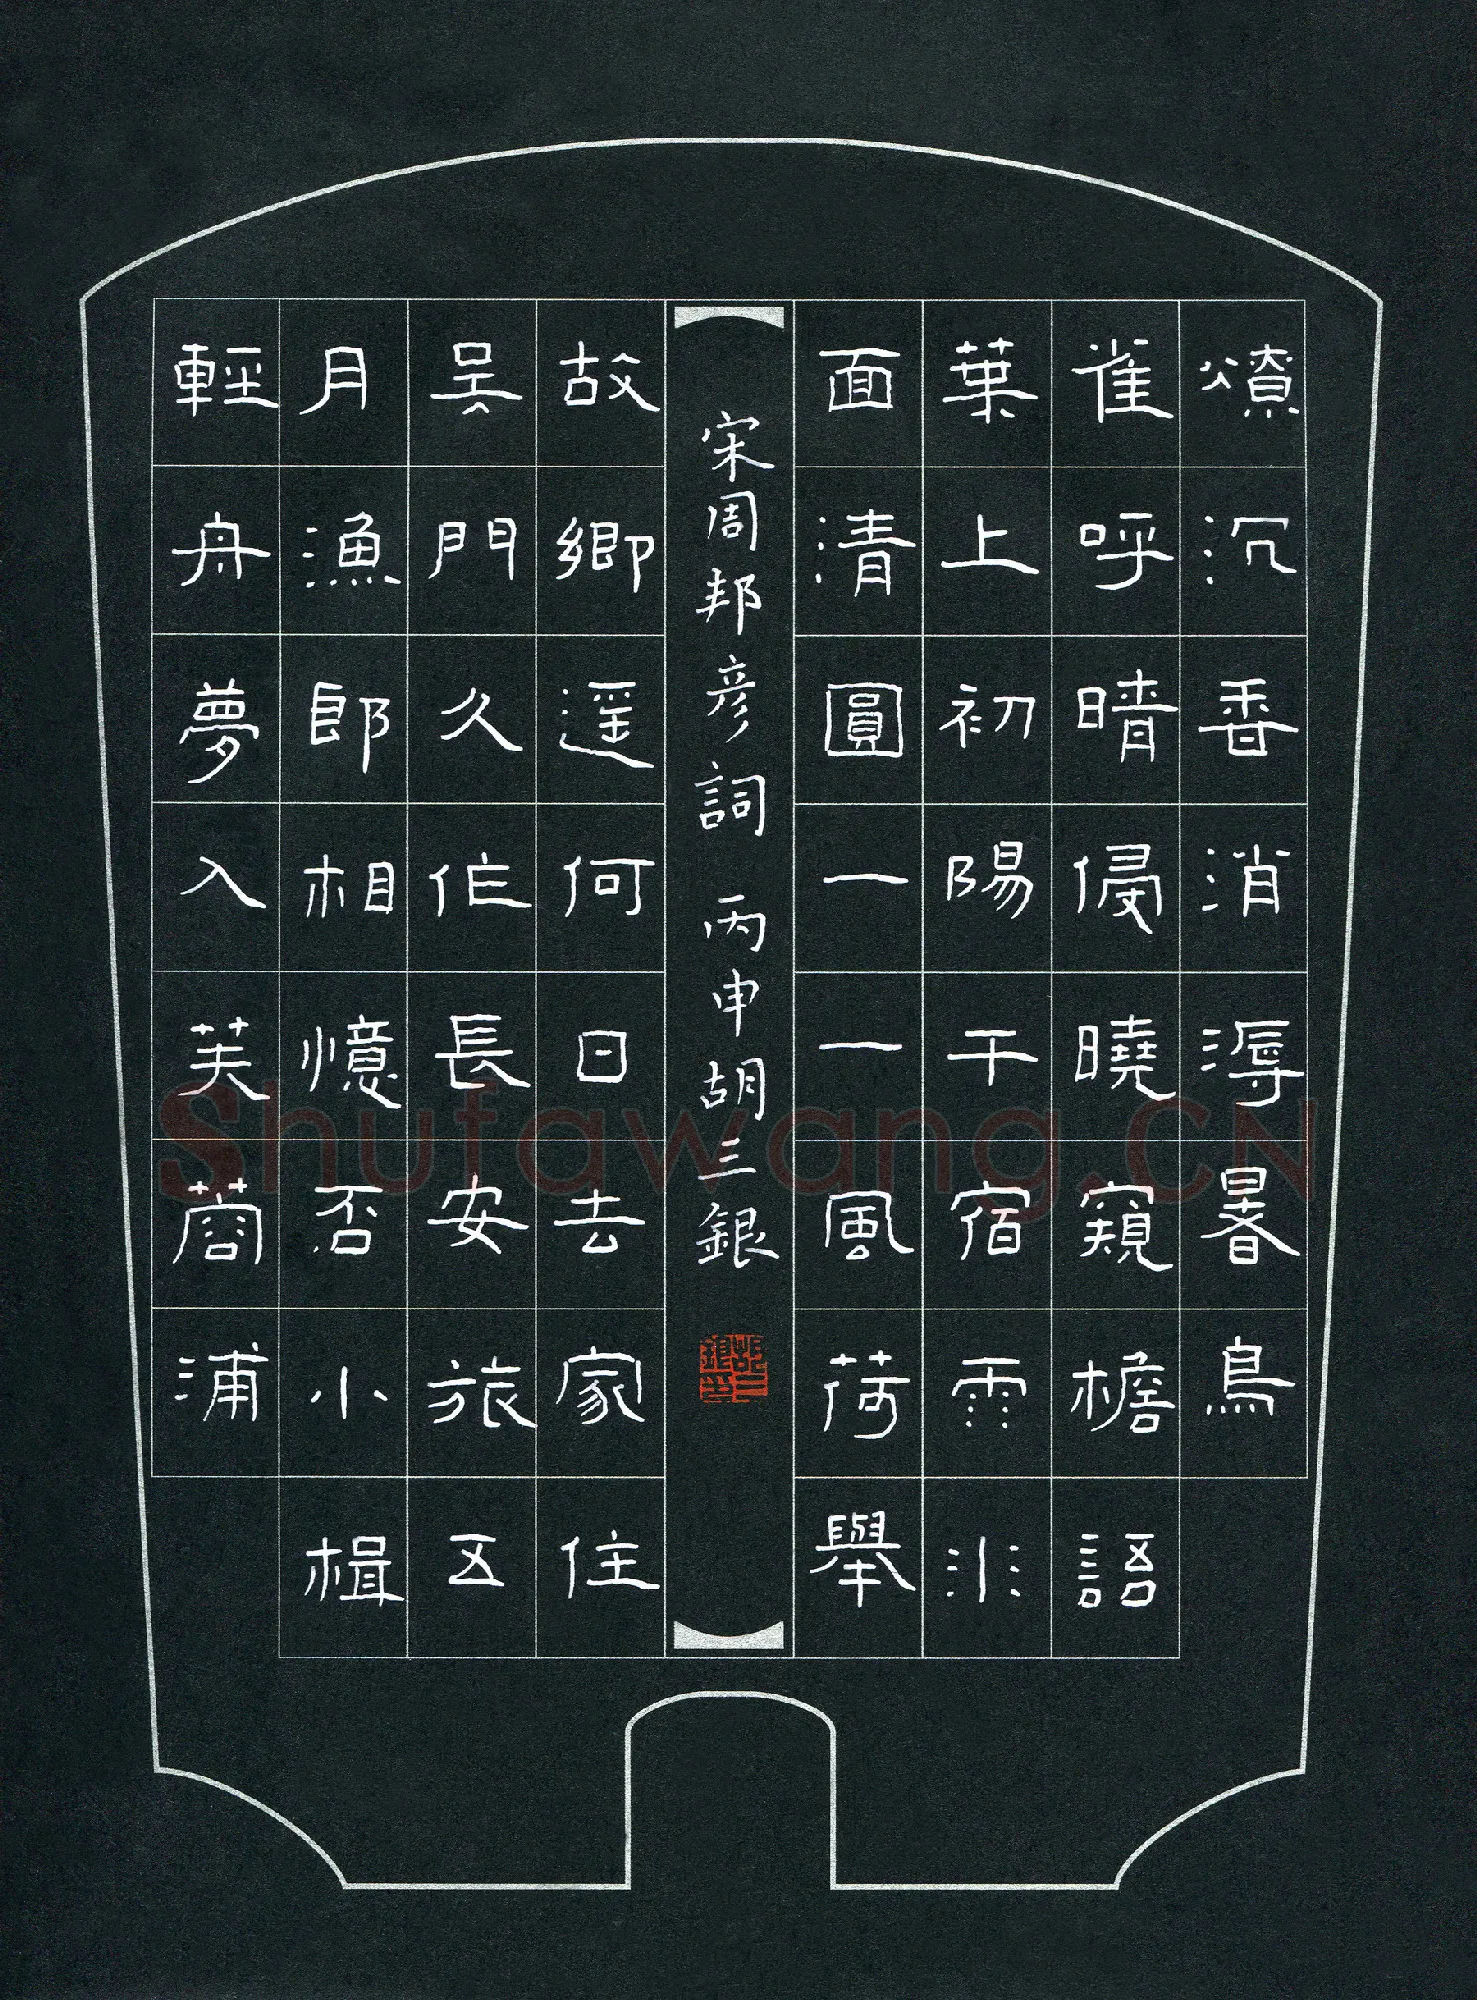 燎沉香消溽暑鳥
雀呼晴侵曉窺檐語
葉上初陽干宿雨水
面清圓一一風荷舉
宋周邦彦詞 丙申胡三銀
故鄉遥何日去家住
吴門久作長安旅五
月漁郎相憶否小楫
輕舟夢入芙蓉浦
Shufawang.CN